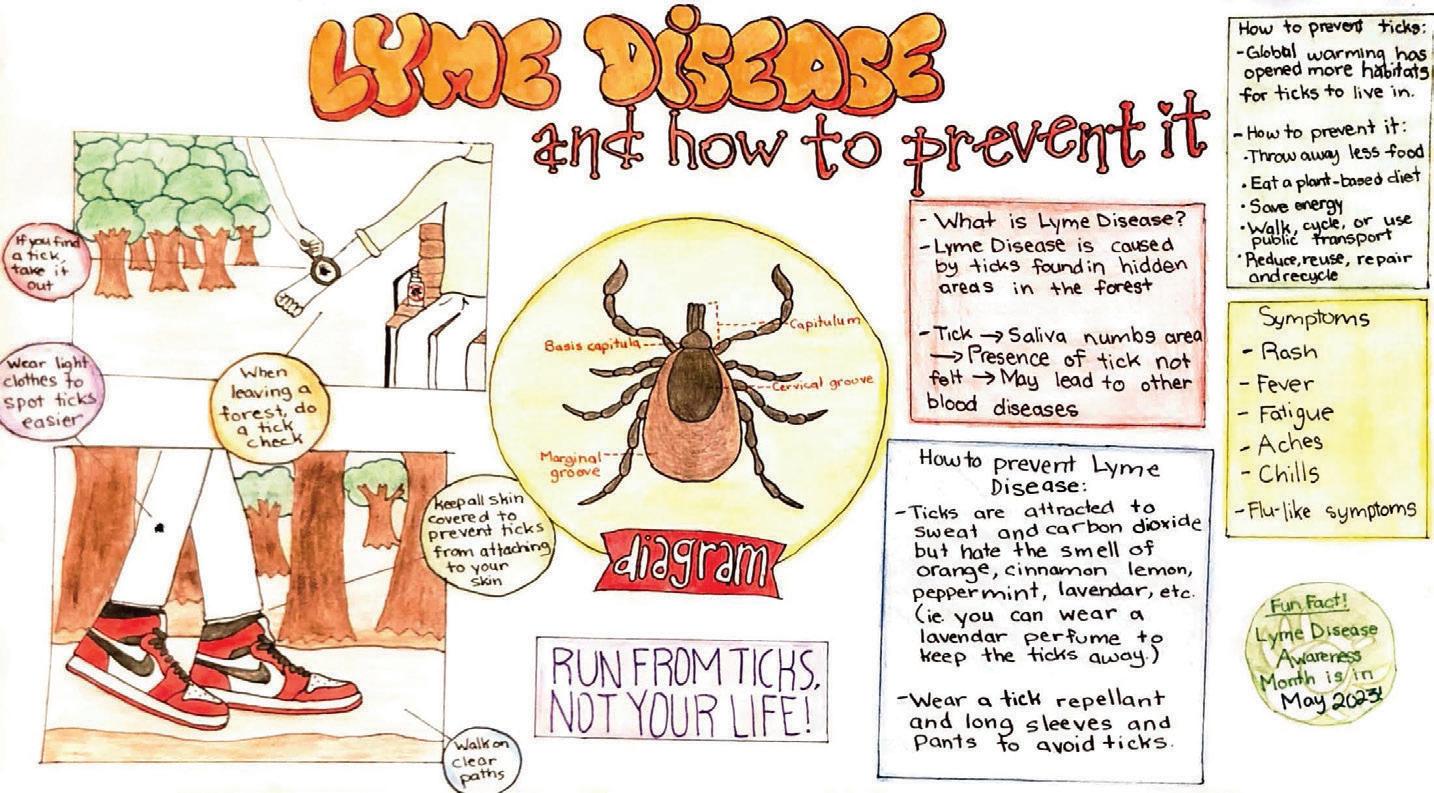 LYME DISEASE
and how to prevent it
If you find
a tick,
take it
out
Wear light
clothes to
spot ticks
easier
When
leaving a
forest, do
a tick
check
keep all skin
covered to
prevent ticks
from attaching
to your
skin
Walk on
clear
paths
Capitulum
Basis capitula
Cervical groove
Marginal
groove
diagram
RUN FROM TICKS,
NOT YOUR LIFE!
- What is Lyme Disease?
- Lyme Disease is caused
by ticks found in hidden
areas in the forest
- Tick → Saliva numbs area
→ Presence of tick not
felt → May lead to other
blood diseases
How to prevent Lyme
Disease:
- Ticks are attracted to
sweat and carbon dioxide
but hate the smell of
orange, cinnamon lemon,
peppermint, lavendar, etc.
(ie. you can wear a
lavendar perfume to
keep the ticks away.)
- Wear a tick repellant
and long sleeves and
pants to avoid ticks.
How to prevent ticks:
- Global warming has
opened more habitats
for ticks to live in.
- How to prevent it:
• Throw away less food
• Eat a plant-based diet
• Save energy
• Walk, cycle, or use
public transport
• Reduce, reuse, repair
and recycle
Symptoms
- Rash
- Fever
- Fatigue
- Aches
- Chills
- Flu-like symptoms
Fun Fact!
Lyme Disease
Awareness
Month is in
May 2023!